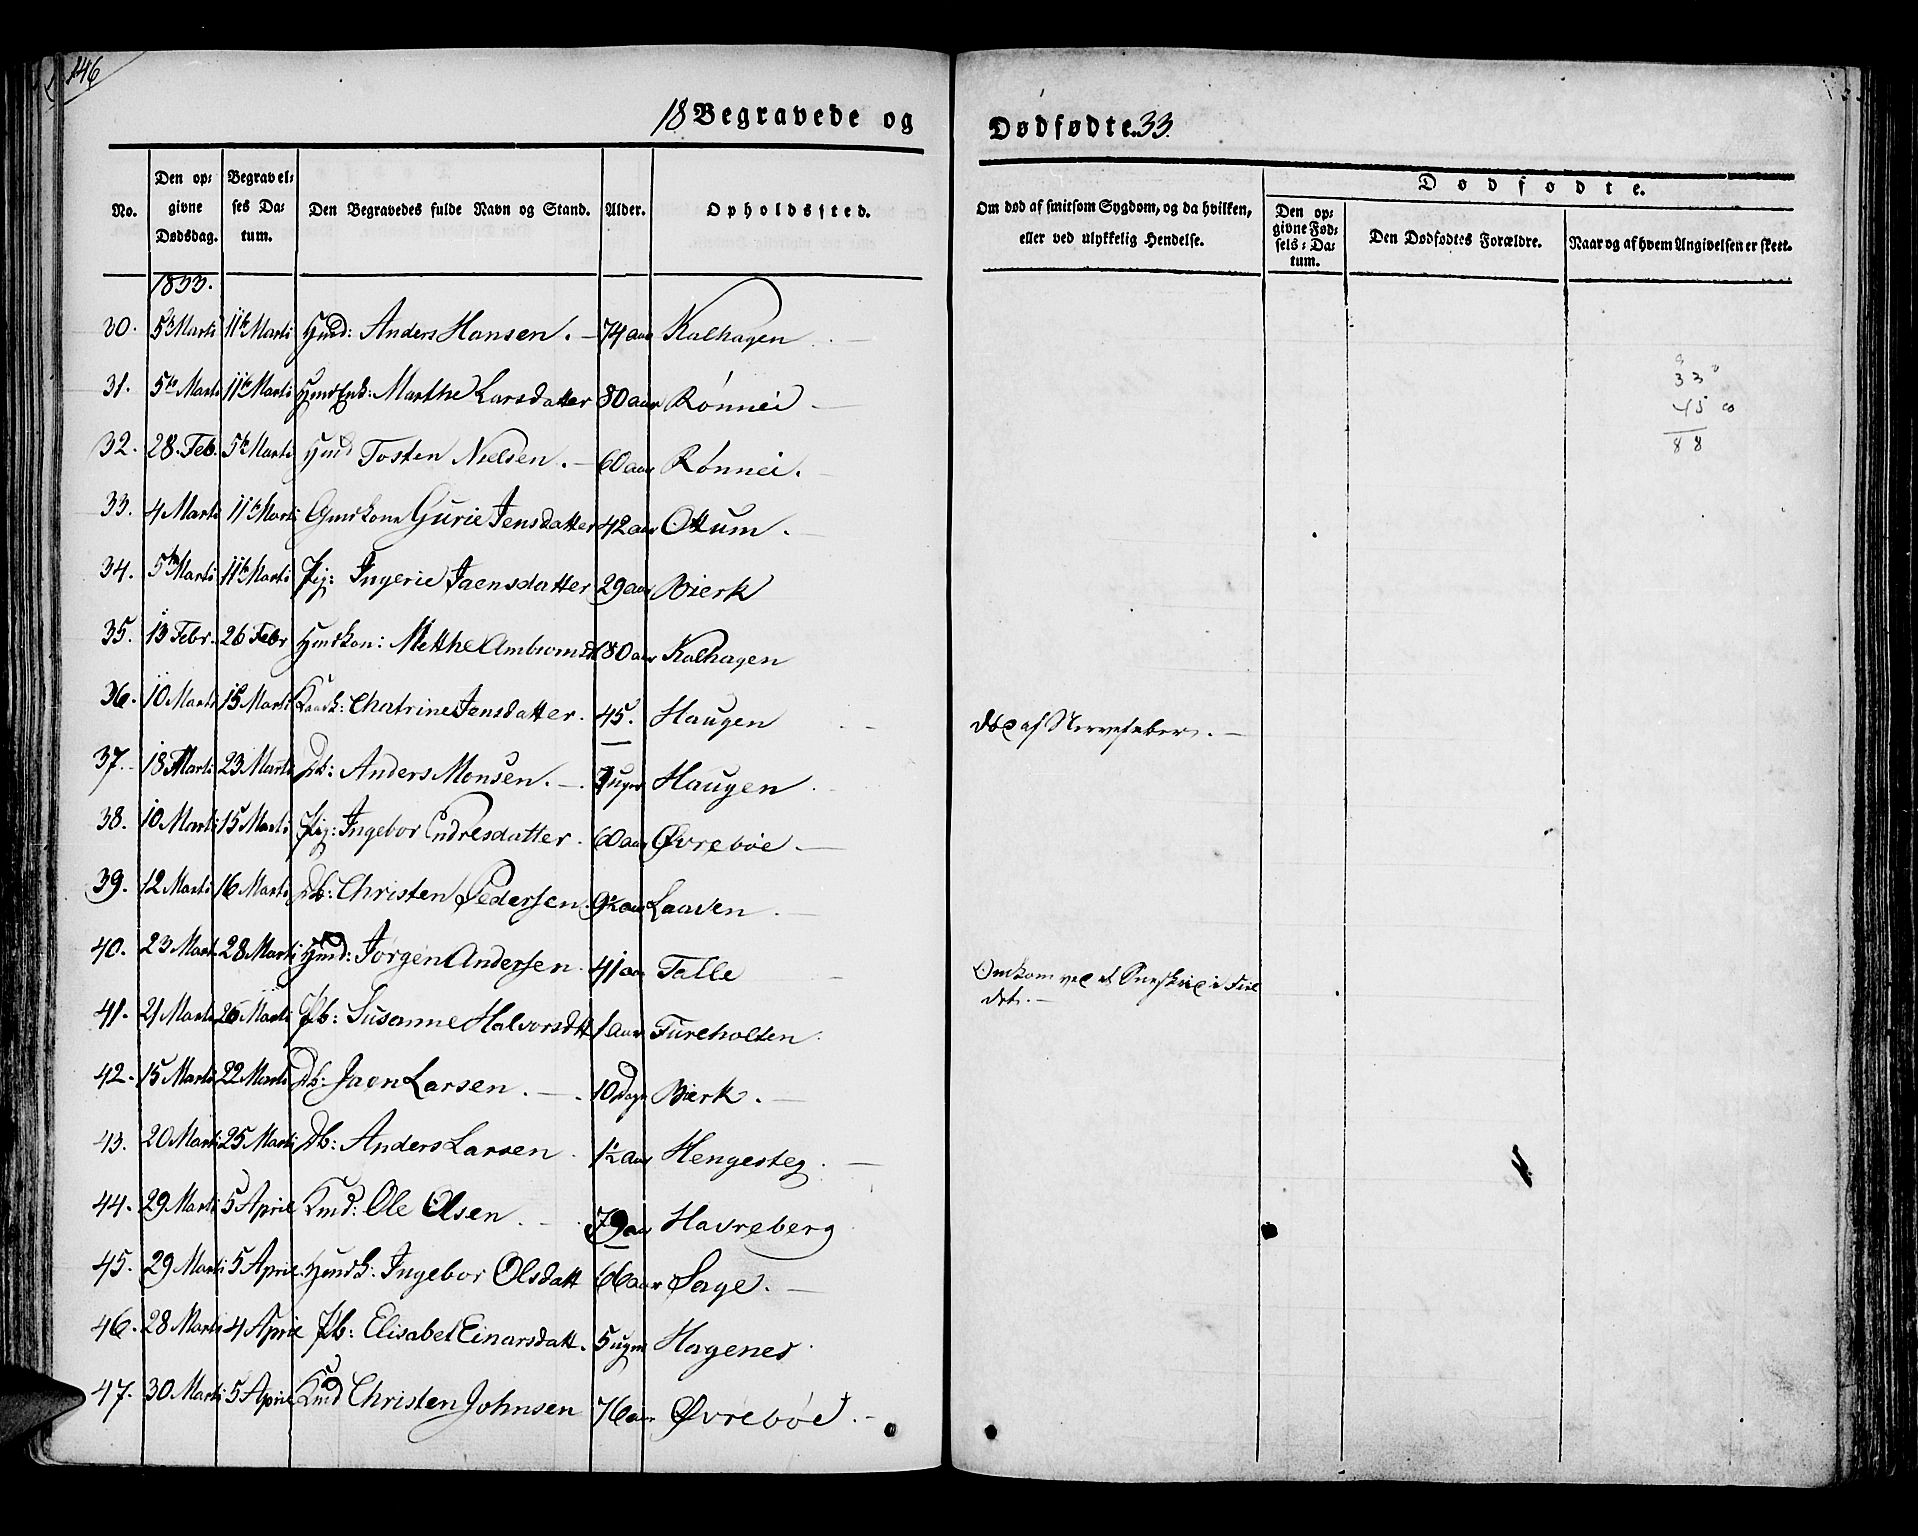 146
18 Begravede og Dødfødte. 33.
No.
Den op-
givne
Dødsdag.
Begravel-
ses Da-
tum.
Den Begravedes fulde Navn og Stand.
Alder.
Opholdssted.
Om død af smitsom Sygdom, og da hvilken,
eller ved ulykkelig Hendelse.
Dødfødte.
Den op-
givne Fød-
sels-Da-
tum.
Den Dødfødtes Forældre.
Naar og af hvem Angivelsen er skeet.
1833.
30. 5te Marti 11te Marti Hmd: Anders Hansen. 74 aar Kalhagen
31. 5te Marti 11te Marti Marthe Larsdatter 80 aar Rønnei
32. 28. Feb. 5te Marti Hmd Tosten Nielsen. 60 aar Rønnei.
33. 4 Marti 11te Marti Gurie Jensdatter 42 aar Ottum.
34. 5te Marti 11te Marti Pig: Ingerie Jaensdatter 29 aar Bierk
35. 13 Febr. 26 Febr Hmdkon: Metthe 80 aar Kalhagen
36. 10 Marti 15 Marti Chatrine Jensdatter. 45. Haugen død af Nervefeber.
37. 18 Marti 23 Marti Db: Anders Monsen. uger Haugen
38. 10 Marti 15 Marti Pig: Ingebor Endresdatter. 60 aar Øvrebøe
39. 12 Marti 16 Marti Db: Christen Pedersen. 9½ aar Laaven
40. 23 Mart. 28 Marti Hmd: Jørgen Andersen 41 aar Talle Omkom ved et Sneskred i Fiel
det.
41. 21 Marti 26 Marti Pb: Susanne Halvorsdtt 1 aar Fureholten
42. 15 Marti 22 Marti Db: Jaen Larsen. 10 dage Bierk.
43. 20 Marti 25 Marti Db: Anders Larsen 1½ aar Hengesteg.
44. 29 Marti 5 April Kmd: Ole Olsen. 79 aar Havreberg
45. 29 Marti 5 April Hmdk: Ingebor Olsdatt 66 aar Sage.
46. 28 Marti 4 April Pb: Elisabet Einarsdatt. 5 uger Hagenes
47. 30 Marti 5 April Kmd Christen Johnsen 76 aar Øvrebøe.
33
45
88